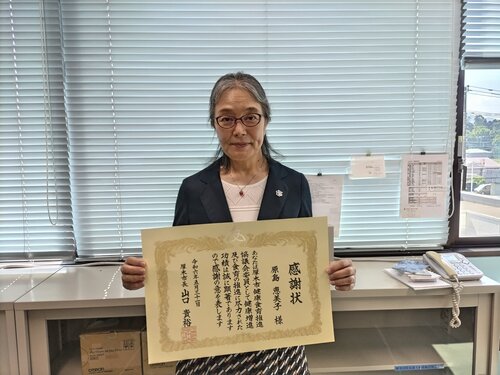 感謝状
原島 恵美子 様
あなたは厚木市健康食育推進
協議会委員として健康増進
及び食育の推進に尽力された
功績は誠に顕著であります
ので感謝の意を表します
令和六年五月三十一日
厚木市長 山口 貴裕